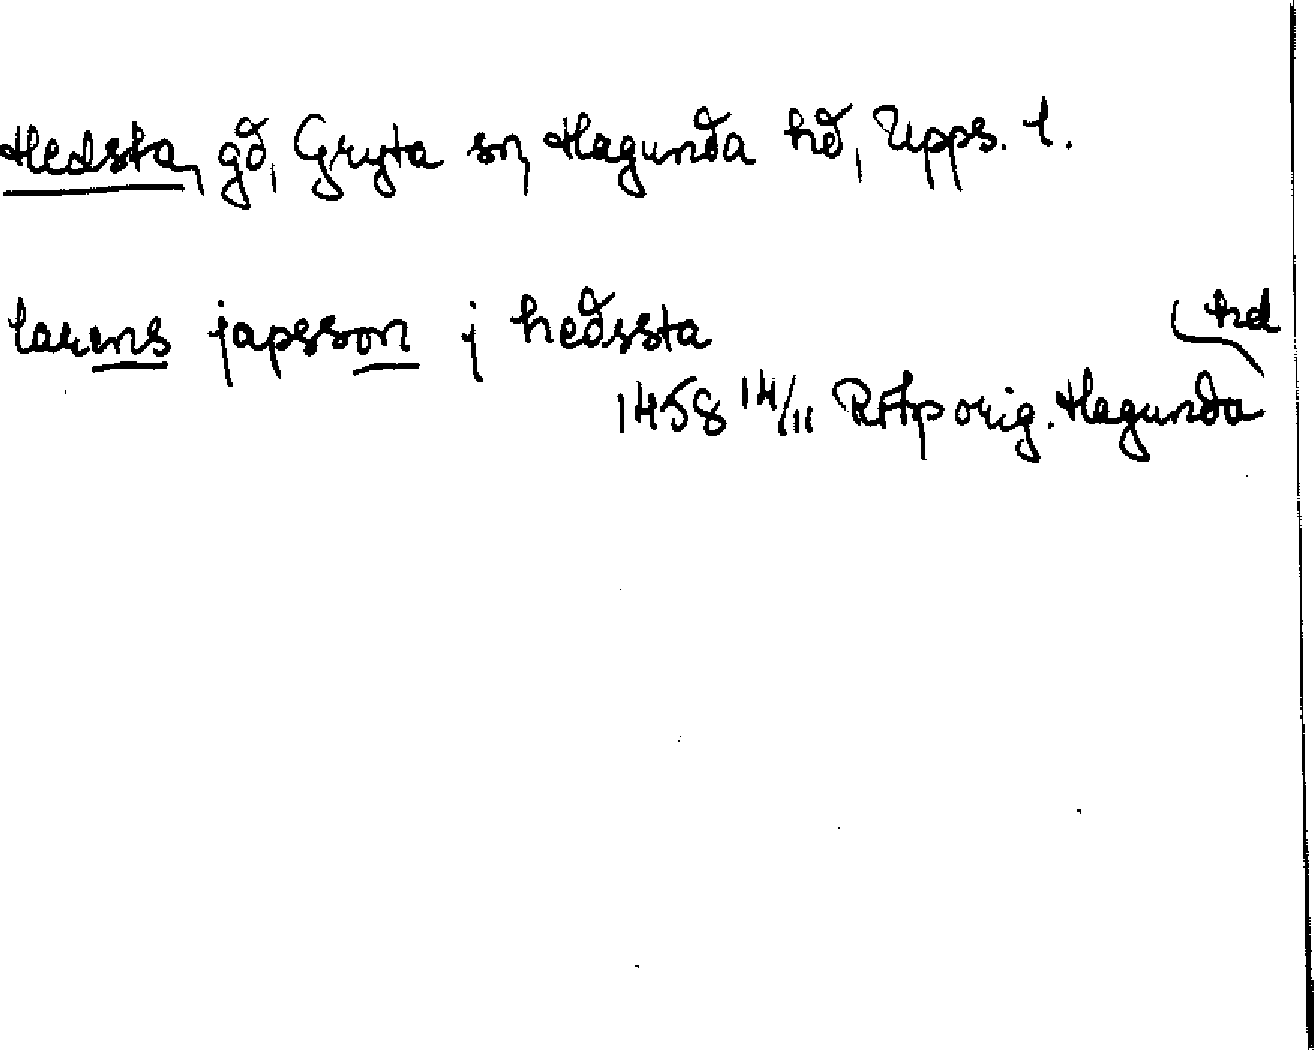 Hedsta, gd, Gryta sn, Hagunda hd, Upps. l.
larens japsson j hedssta
1458 14/11 RAp orig. Hagunda hd